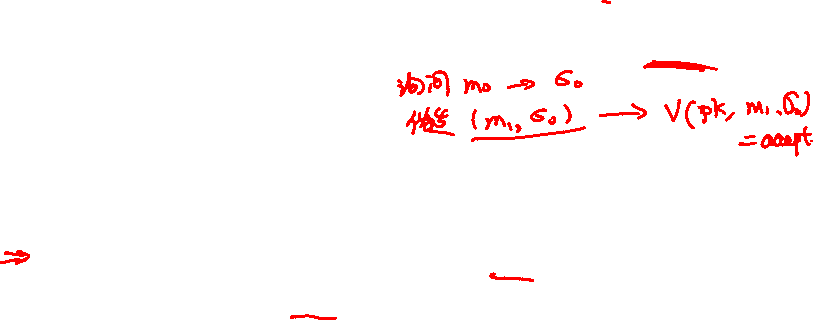 询问 m₀ → σ₀
(m₁, σ₀) → V(pk, m₁, σ₀)
= accept